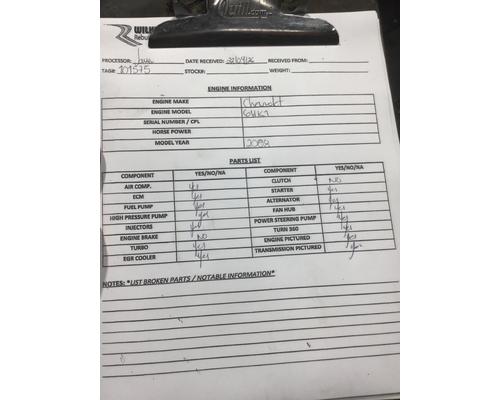 Wilson.com
WILK
Rebui
PROCESSOR: DATE RECEIVED: RECEIVED FROM:
TAG#: 101575 STOCK#: WEIGHT:
ENGINE INFORMATION
ENGINE MAKE Chevrolet
ENGINE MODEL
SERIAL NUMBER / CPL
HORSE POWER
MODEL YEAR 2008
PARTS LIST
COMPONENT YES/NO/NA COMPONENT YES/NO/NA
AIR COMP. yes CLUTCH NO
ECM yes STARTER yes
FUEL PUMP yes ALTERNATOR yes
HIGH PRESSURE PUMP yes FAN HUB yes
INJECTORS yes POWER STEERING PUMP yes
ENGINE BRAKE NO TURN 360 yes
TURBO yes ENGINE PICTURED yes
EGR COOLER yes TRANSMISSION PICTURED yes
NOTES: *LIST BROKEN PARTS / NOTABLE INFORMATION*